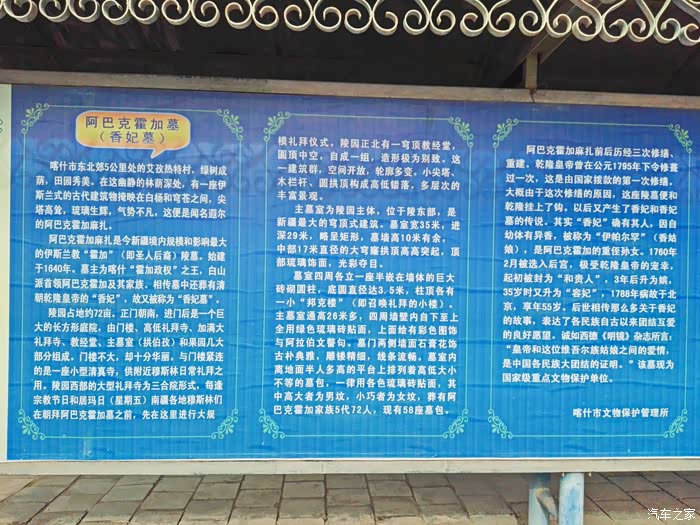 阿巴克霍加墓
（香妃墓）
喀什市东北郊5公里处的艾孜热特村，绿树成
荫，田园秀美，在这幽静的林荫深处，有一座伊
斯兰式的古代建筑物掩映在白杨和穹苍之间，尖
塔高耸，琉璃生辉，气势不凡，这便是闻名遐尔
的阿巴克霍加麻扎。
阿巴克霍加麻扎是今新疆境内规模和影响最大
的伊斯兰教“霍加”（即圣人后裔）陵墓。始建
于1640年。墓主为喀什“霍加政权”之王，白山
派首领阿巴克霍加及其家族，相传墓中还葬有清
朝乾隆皇帝的“香妃”，故又被称为“香妃墓”。
陵园占地约72亩，正门朝南，进门后是一个巨
大的长方形庭院，由门楼、高低礼拜寺、加满大
礼拜寺、教经堂、主墓室（拱佰孜）和果园几大
部分组成。门楼不大，却十分华丽。与门楼紧连
的是一座小型清真寺，供附近穆斯林日常礼拜之
用。陵园西部的大型礼拜寺为三合院形式，每逢
宗教节日和居玛日（星期五）南疆各地穆斯林们
在朝拜阿巴克霍加墓之前，先在这里进行大规
模礼拜仪式。陵园正北有一穹顶教经堂，
圆顶中空，自成一组，造形极为别致。这
一建筑群，空间开放，轮廓多变，小尖塔、
木栏杆、圆拱顶构成高低错落，多层次的
丰富景观。
主墓室为陵园主体，位于陵东部，是
新疆最大的穹顶式建筑。墓室宽35米，进
深29米，略呈矩形，墓墙高10米有余，
中部17米直径的大穹窿拱顶高高突起，顶
部琉璃饰面，光彩夺目。
墓室四周各立一座半嵌在墙体的巨大
砖砌圆柱，底圆直径达3.5米，柱顶各有
一小“邦克楼”（即召唤礼拜的小楼）。
主墓室通高26米多，四周墙壁内自下至上
全用绿色琉璃砖贴面，上面绘有彩色图饰
与阿拉伯文警句。墓门两侧墙面石膏花饰
古朴典雅，雕镂精细，线条流畅。墓室内
离地面半人多高的平台上排列着高低大小
不等的墓包，一律用各色琉璃砖贴面，其
中高大者为男坟，小巧者为女坟，葬有阿
巴克霍加家族5代72人，现有58座墓包。
阿巴克霍加麻扎前后历经三次修缮、
重建，乾隆皇帝曾在公元1795年下令修葺
过一次，这是由国家拨款的第一次修缮。
大概由于这次修缮的原因，这座陵墓便和
乾隆挂上了钩，以后又产生了香妃和香妃
墓的传说。其实“香妃”确有其人，因自
幼体有异香，被称为“伊帕尔罕”（香姑
娘），是阿巴克霍加的重侄孙女。1760年
2月被选入后宫，极受乾隆皇帝的宠幸，
起初被封为“和贵人”，3年后升为嫔，
35岁时又升为“容妃”，1788年病故于北
京，享年55岁，后世相传那么多关于香妃
的故事，表达了各民族自古以来团结互爱
的良好愿望。诚如西德《明镜》杂志所言：
“皇帝和这位维吾尔族姑娘之间的爱情，
是中国各民族大团结的证明。”该墓现为
国家级重点文物保护单位。
喀什市文物保护管理所
汽车之家